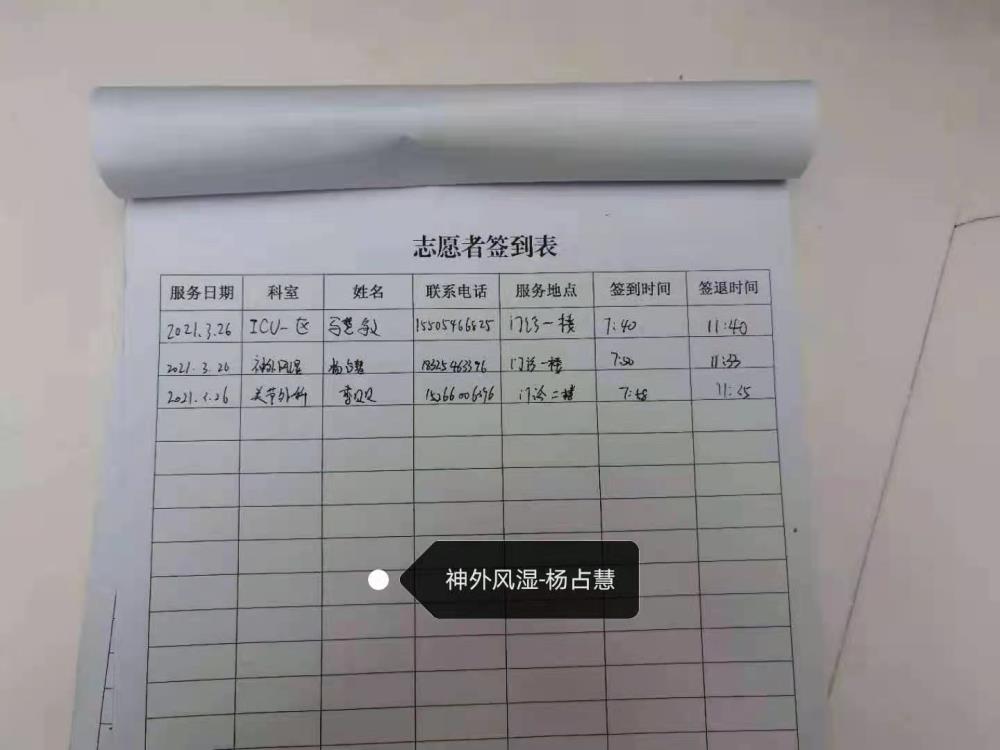 志愿者签到表
服务日期 科室 姓名 联系电话 服务地点 签到时间 签退时间
2021.3.26 ICU一区 15505466825 门诊一楼 7:40 11:40
2021.3.26 神外风湿 杨占慧 门诊一楼 7:50 11:33
2021.3.26 关节外科 门诊二楼
神外风湿-杨占慧